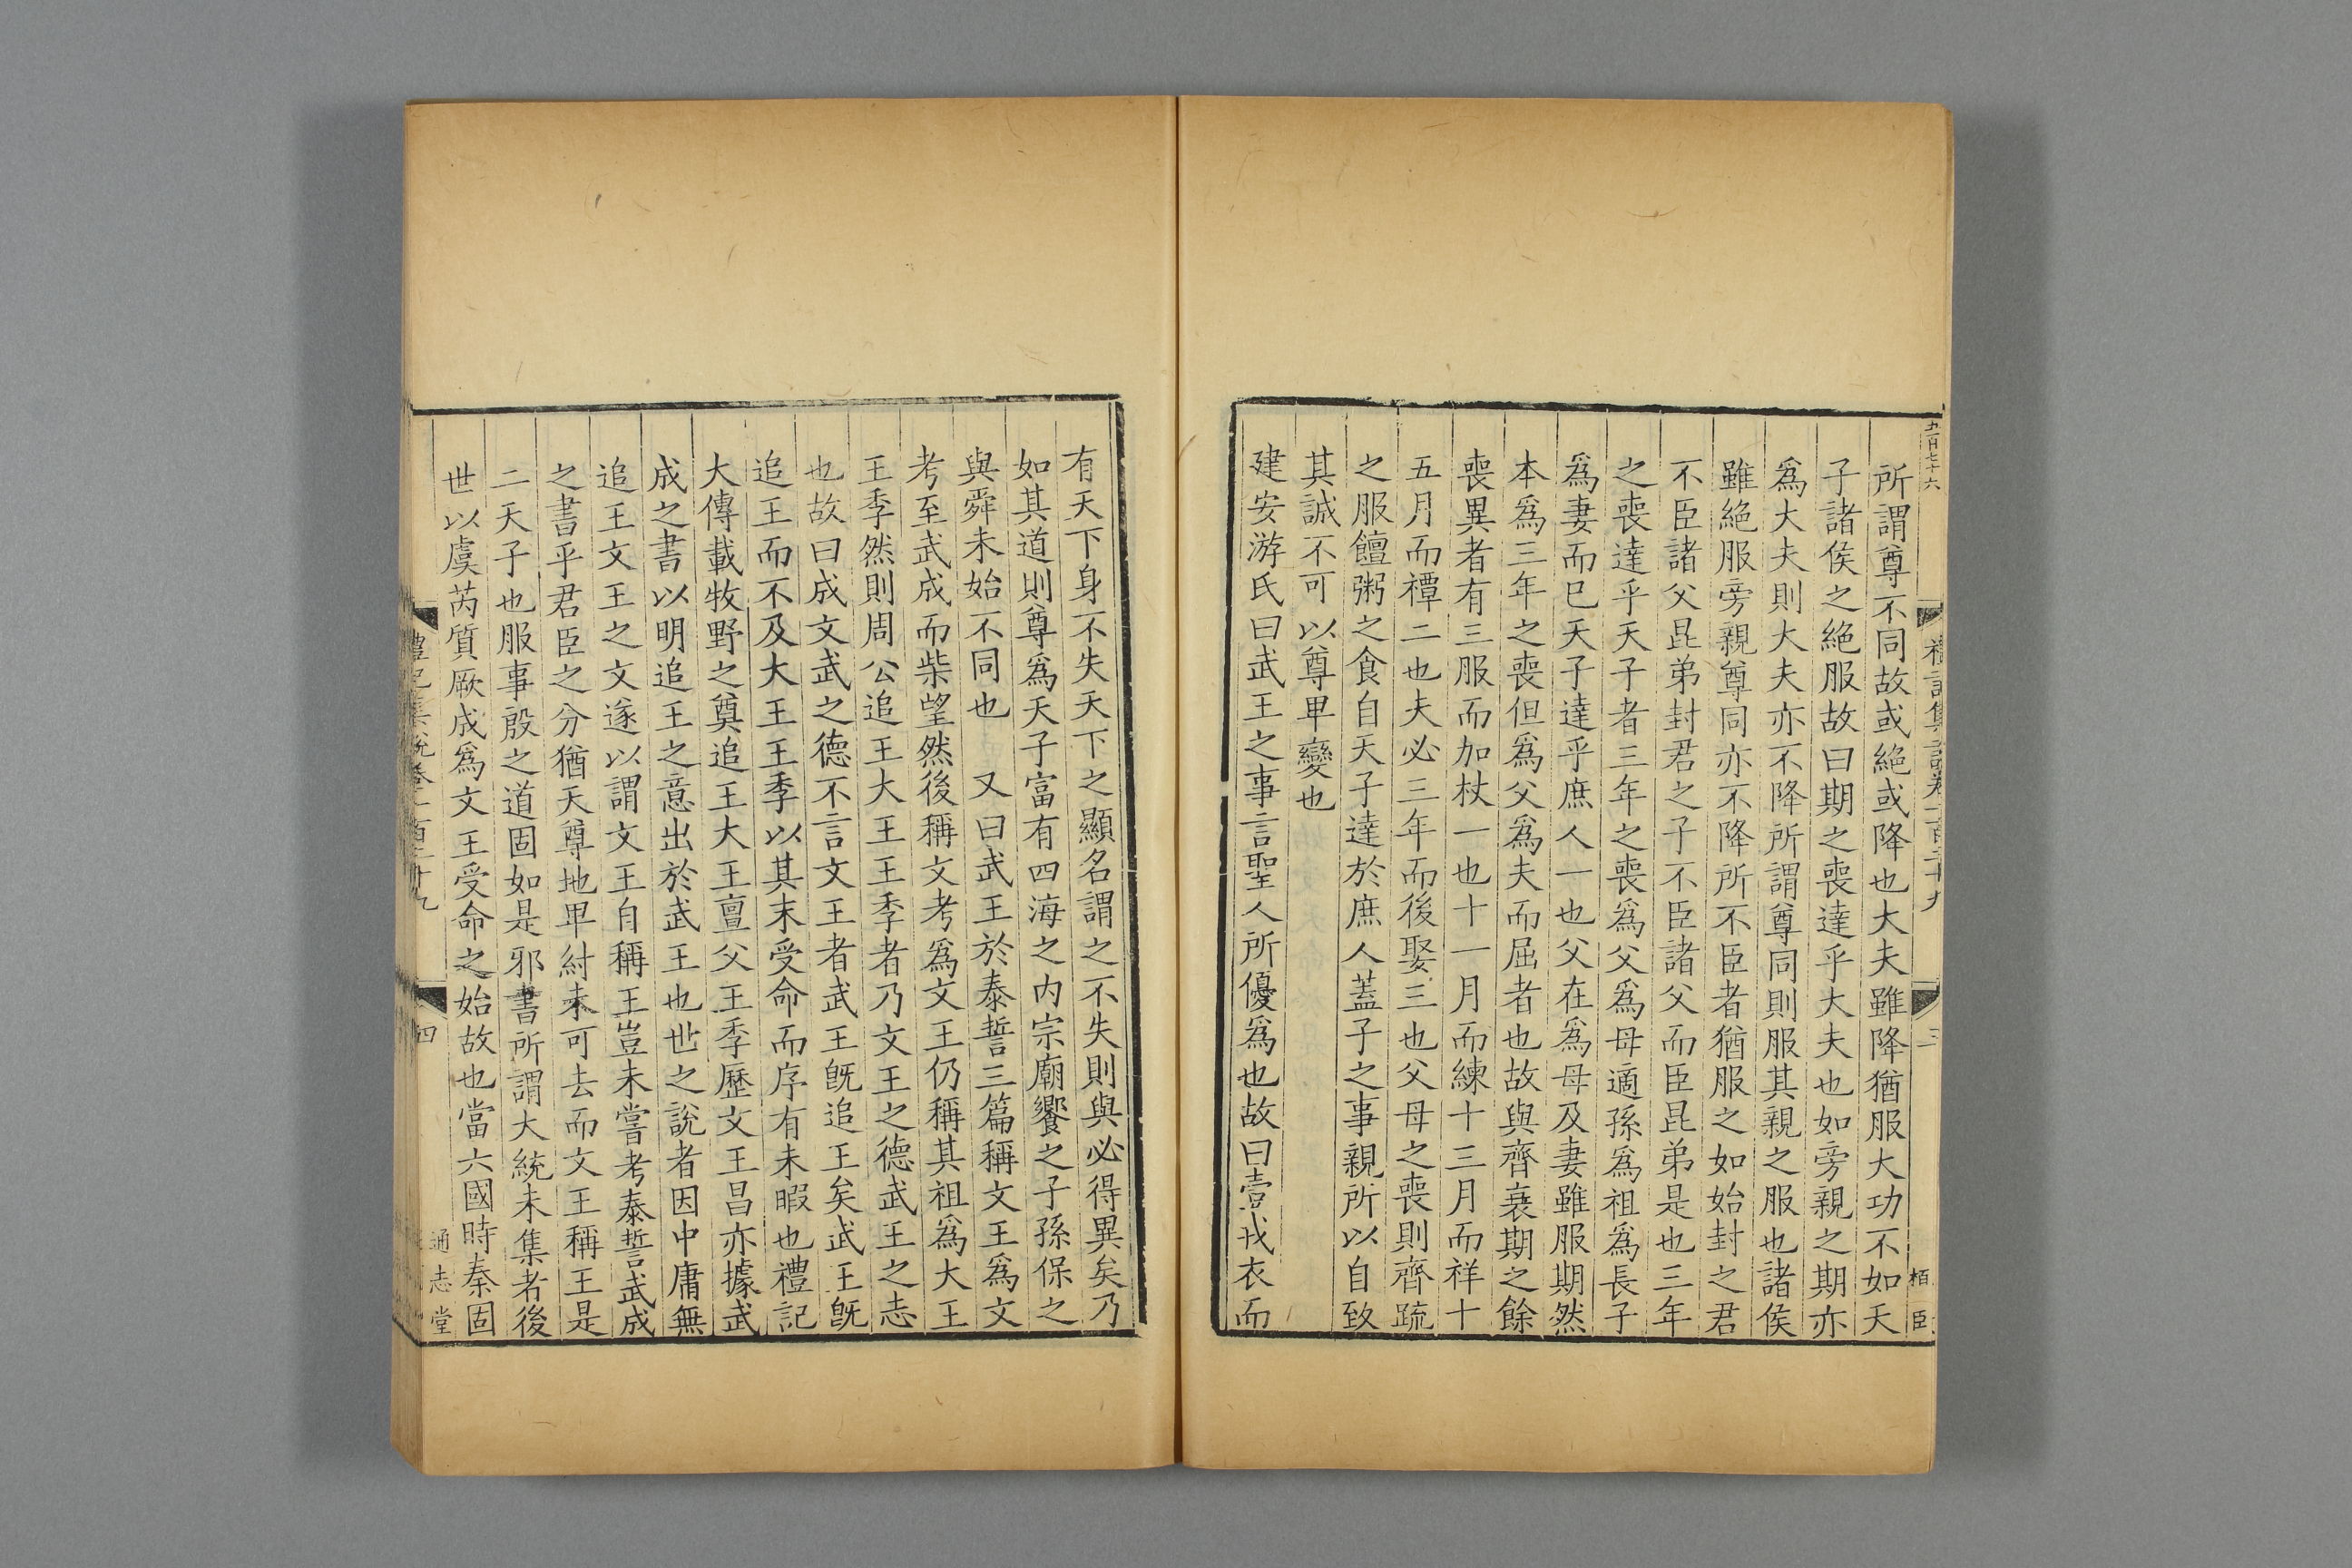 五百七十六
禮記集說卷一百二十九
三
栢臣
所謂尊不同故或絕或降也大夫雖降猶服大功不如天
子諸侯之絕服故曰期之喪達乎大夫也如旁親之期亦
爲大夫則大夫亦不降所謂尊同則服其親之服也諸侯
雖絕服旁親尊同亦不降所不臣者猶服之如始封之君
不臣諸父昆弟封君之子不臣諸父而臣昆弟是也三年
之喪達乎天子者三年之喪爲父爲母適孫爲祖爲長子
爲妻而已天子達乎庶人一也父在爲母及妻雖服期然
本爲三年之喪但爲父爲夫而屈者也故與齊衰期之餘
喪異者有三服而加杖一也十一月而練十三月而祥十
五月而禫二也夫必三年而後娶三也父母之喪則齊疏
之服饘粥之食自天子達於庶人蓋子之事親所以自致
其誠不可以尊卑變也
建安游氏曰武王之事言聖人所優爲也故曰壹戎衣而
有天下身不失天下之顯名謂之不失則與必得異矣乃
如其道則尊爲天子富有四海之内宗廟饗之子孫保之
與舜未始不同也　又曰武王於泰誓三篇稱文王爲文
考至武成而柴望然後稱文考爲文王仍稱其祖爲大王
王季然則周公追王大王王季者乃文王之德武王之志
也故曰成文武之德不言文王者武王旣追王矣武王旣
追王而不及大王王季以其末受命而序有未暇也禮記
大傳載牧野之奠追王大王亶父王季歷文王昌亦據武
成之書以明追王之意出於武王也世之說者因中庸無
追王文王之文遂以謂文王自稱王豈未嘗考泰誓武成
之書乎君臣之分猶天尊地卑紂未可去而文王稱王是
二天子也服事殷之道固如是邪書所謂大統未集者後
世以虞芮質厥成爲文王受命之始故也當六國時秦固
禮記集說卷一百二十九
四
通志堂